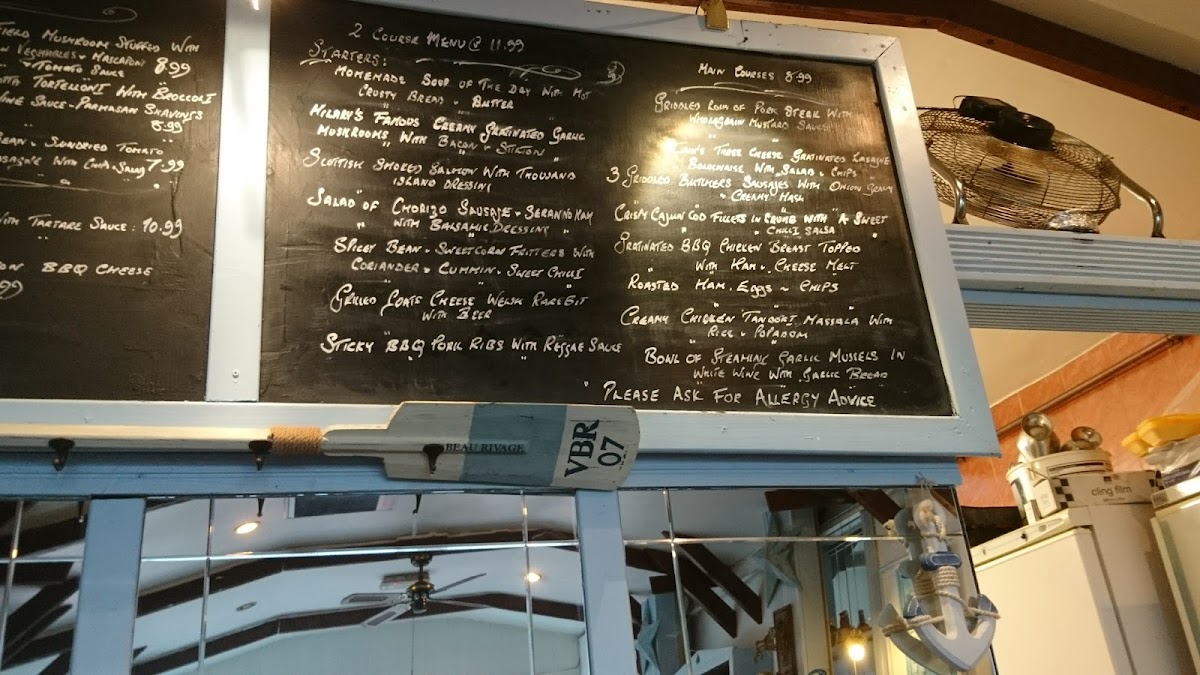 Field Mushroom Stuffed With
Vegetables & Mascapone
& Tomato Sauce 8.99
Tortelloni With Broccoli
Wine Sauce - Parmasan Shavings
8.99
Bean & Sundryed Tomato
With Chips & Salad 7.99
With Tartare Sauce: 10.99
BBQ Cheese
99
2 Course Menu @ 11.99
Starters:
Homemade Soup of The Day With Hot
Crusty Bread & Butter
Hilary's Famous Creamy Gratinated Garlic
Mushrooms With Bacon & Stilton
Scottish Smoked Salmon With Thousand
Island Dressing
Salad of Chorizo Sausage & Serano Ham
With Balsamic Dressing
Spicey Bean & Sweetcorn Fritters With
Coriander & Cummin & Sweet Chilli
Grilled Goats Cheese Welsh Rarebit
With Beer
Sticky BBQ Pork Ribs With Reggae Sauce
Main Courses 8.99
Griddled Loin of Pork Steak With
Wholegrain Mustard Sauce
Three Cheese Gratinated Lasagne
Bolognaise With Salad & Chips
3 Griddled Butchers Sausages With Onion Gravy
& Creamy Mash
Crispy Cajun Cod Fillets in Crumb With A Sweet
Chilli Salsa
Gratinated BBQ Chicken Breast Topped
With Ham & Cheese Melt
Roasted Ham, Eggs ~ Chips
Creamy Chicken Tandori Massala With
Rice & Popadom
Bowl of Steaming Garlic Mussels In
White Wine With Garlic Bread
Please Ask For Allergy Advice
BEAU RIVAGE
VBR
07
cling film